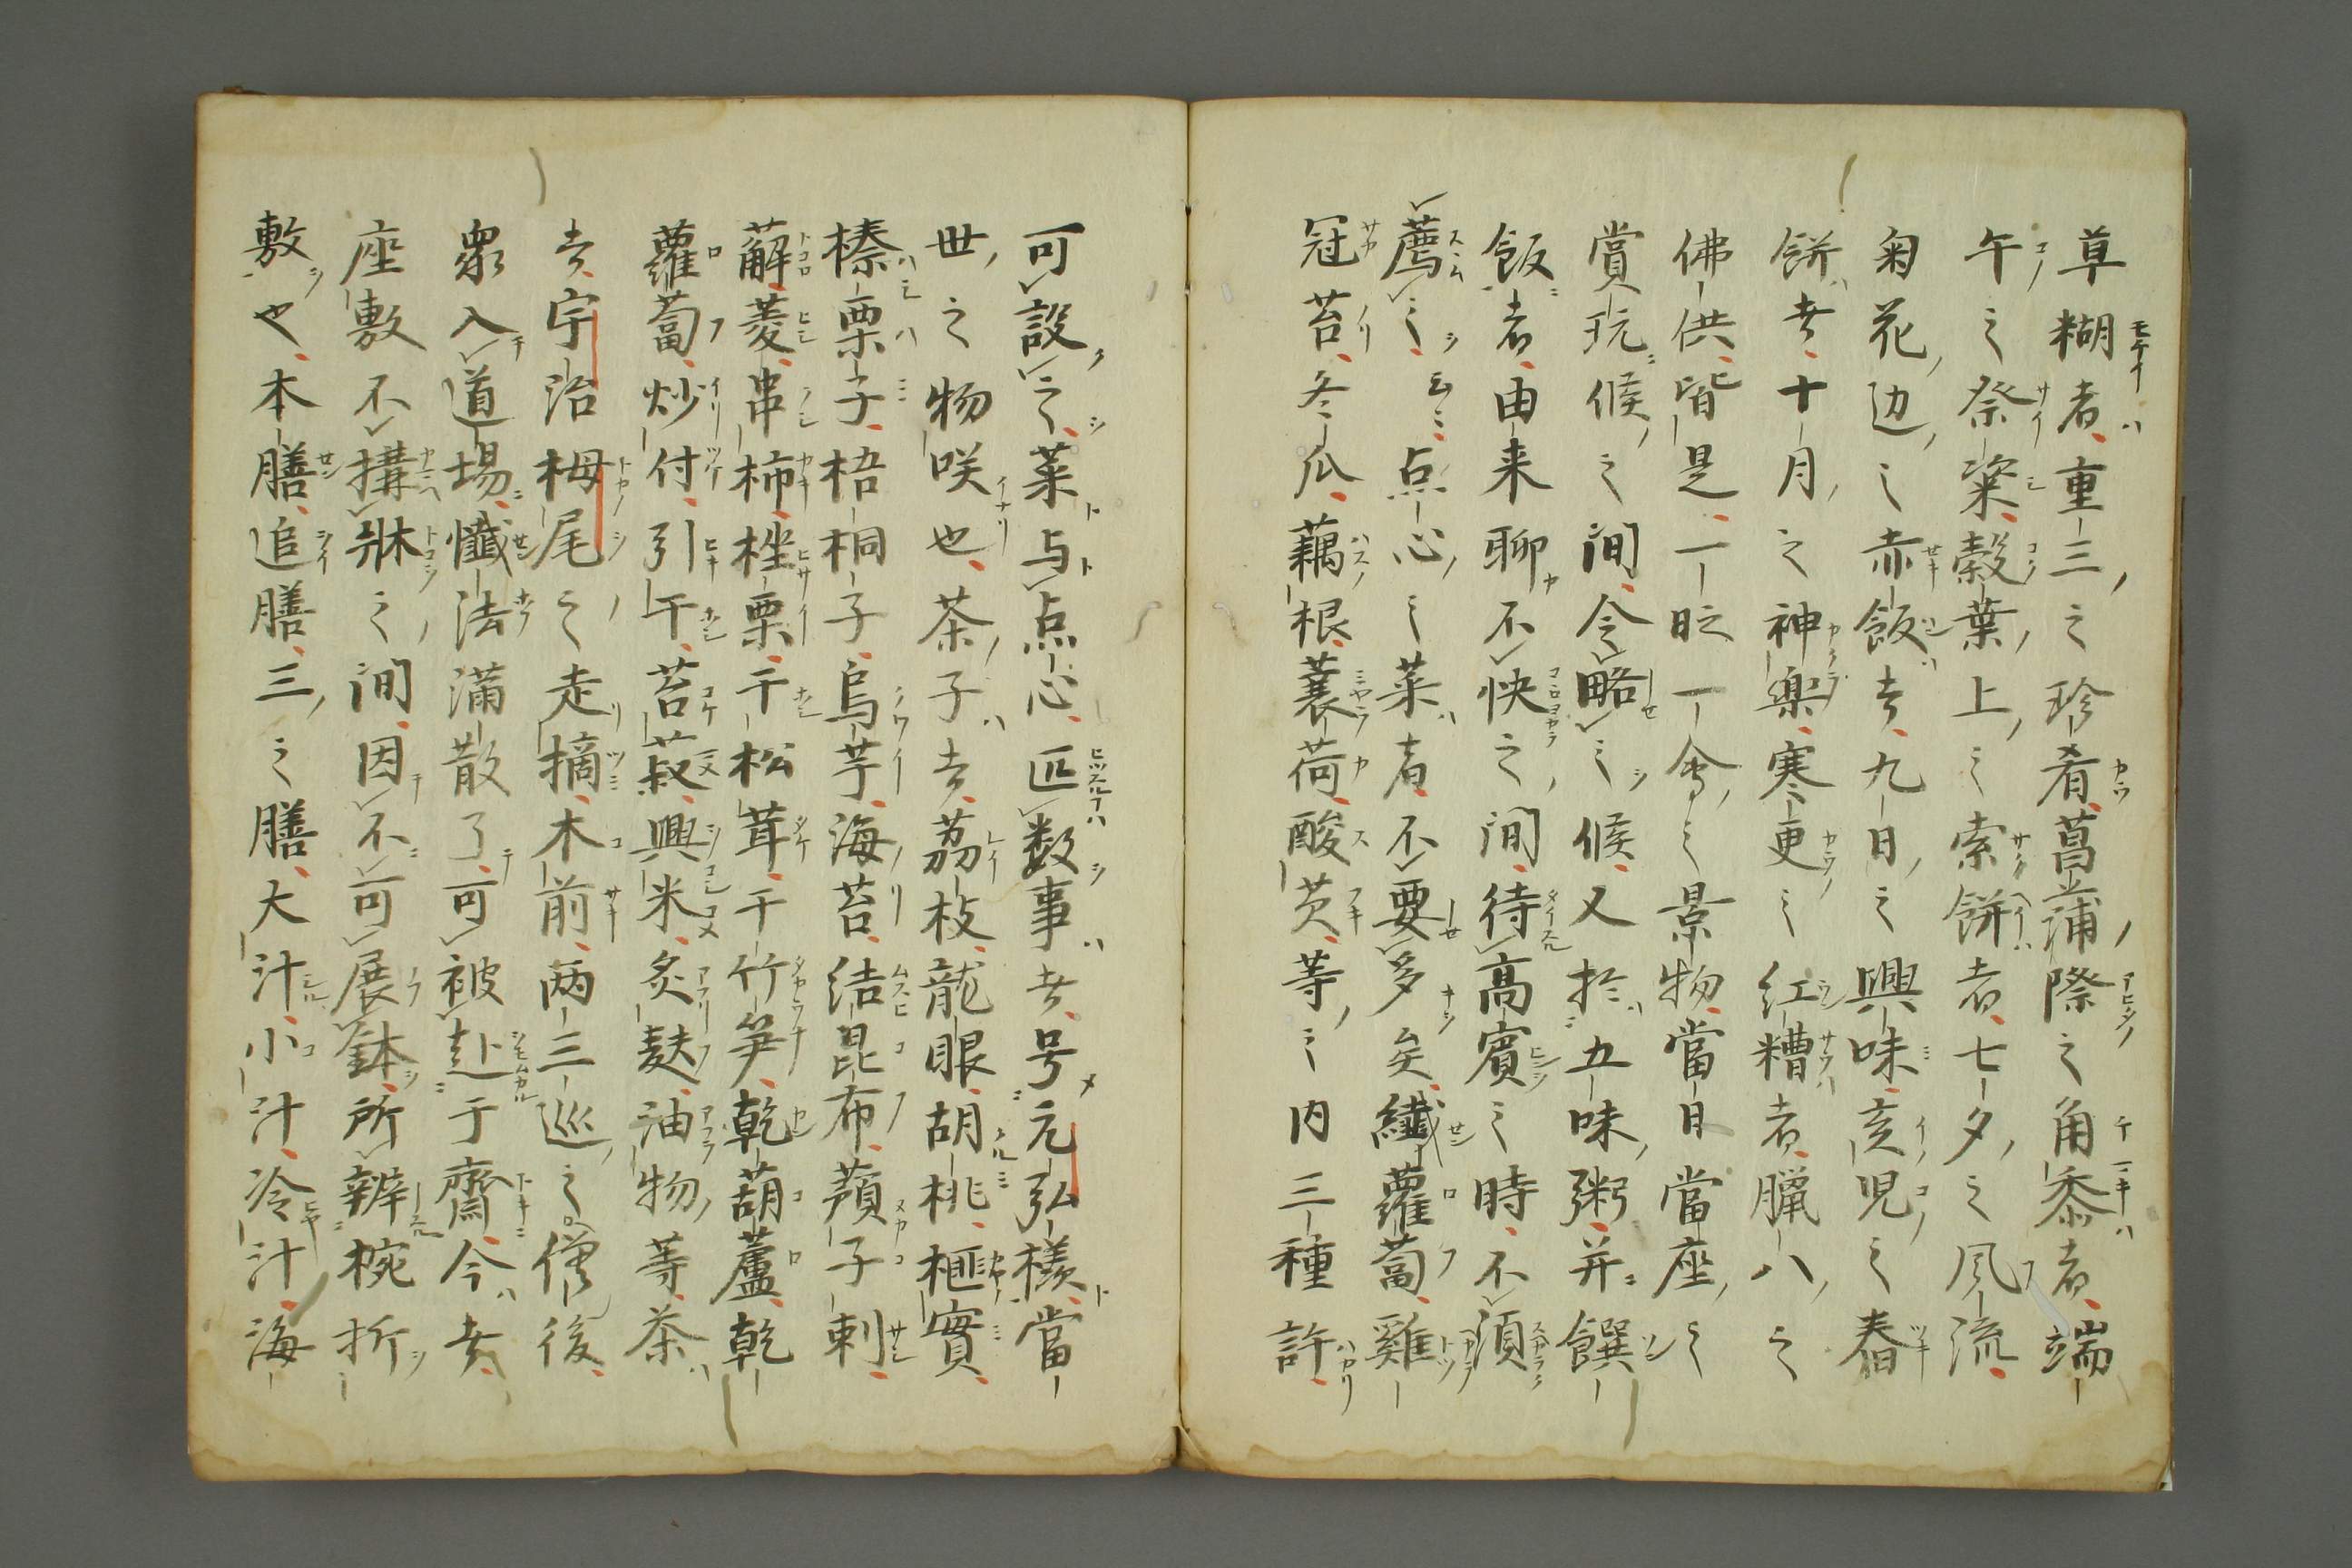 草糊者重三之珍肴菖蒲際之角黍者端
午之祭粢穀葉上之索餅者七夕之風流
菊花辺之赤飯者九日之興味亥児之舂
餅者十月之神楽寒更之紅糟者臘八之
佛供皆是一旦一會之景物當日當座之
賞玩候之间今略之候又於五味粥并饌
飯者由来聊不快之间待高賓之時不須
薦之云々点心之菜者不要多矣纖蘿蔔雞
冠苔冬瓜藕根蘘荷酸芡等之内三種許
可設之菜与点心匹数事者号元弘様當
世之物咲也茶子者茘枝龍眼胡桃榧實
榛栗子梧桐子烏芋海苔結昆布蘋子刺
薢菱串柿挫栗干松茸干竹笋乾葫蘆乾
蘿蔔炒付引干苔菽興米炙麸油物等茶
者宇治栂尾之走摘木前两三巡之僧後
衆入道場懺法満散了可被赴于齋今者
座敷不搆牀之间因不可展鉢所辨椀折
敷也本膳追膳三之膳大汁小汁冷汁海